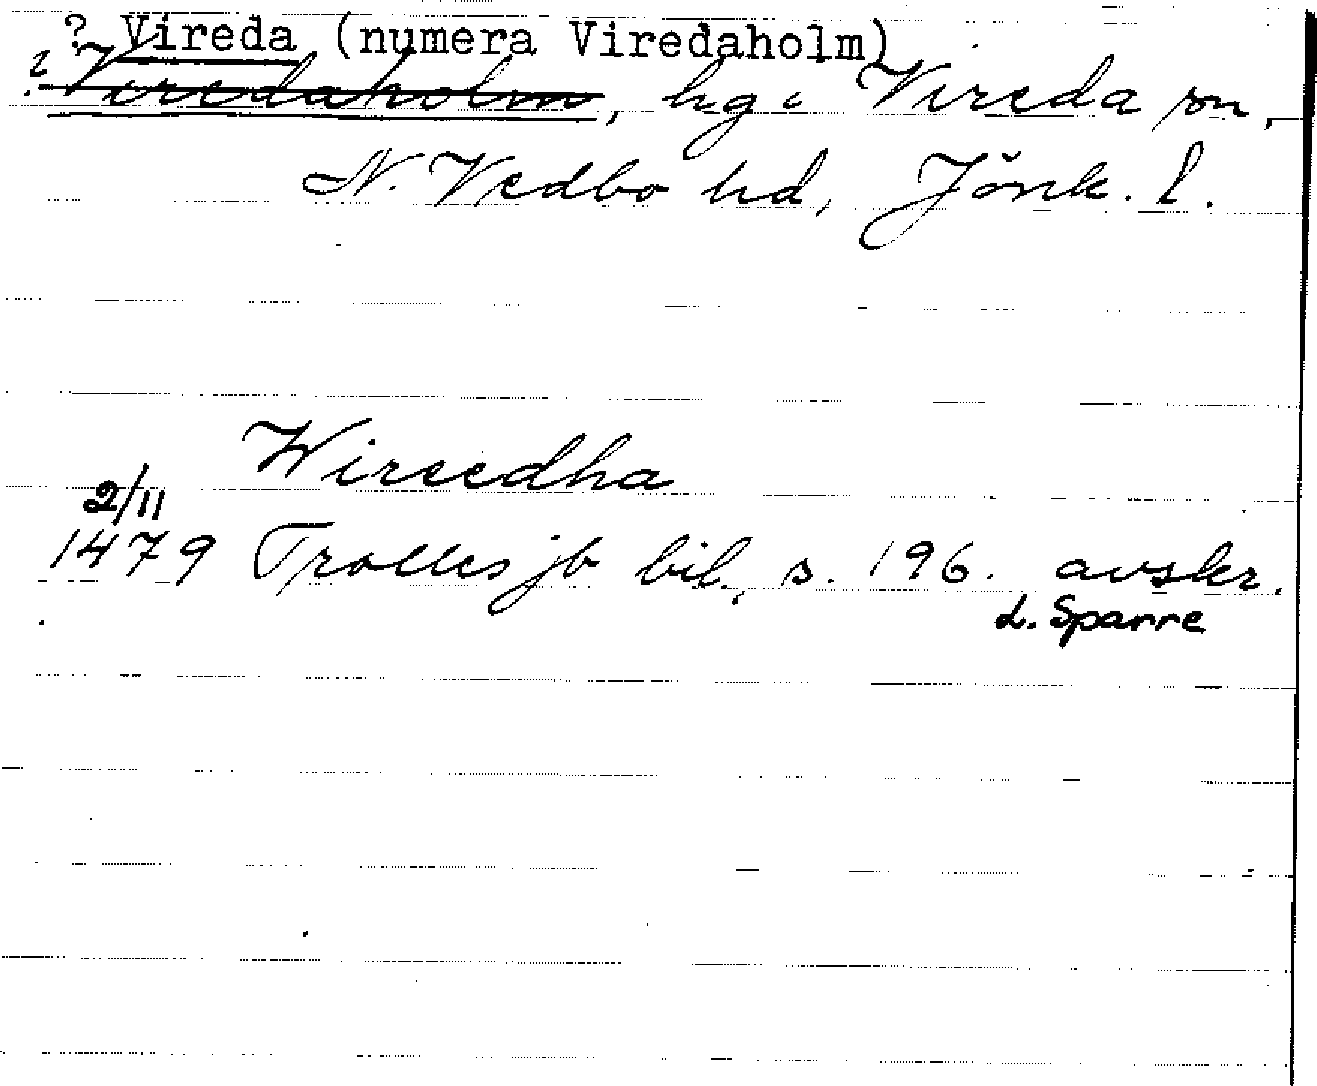 ? Vireda (numera Viredaholm)
? Viredaholm, hg i Vireda sn,
N. Vedbo hd, Jönk. l.
Wireedha
2/11
1479 Trolles jb bil., s. 196. avskr.
L. Sparre